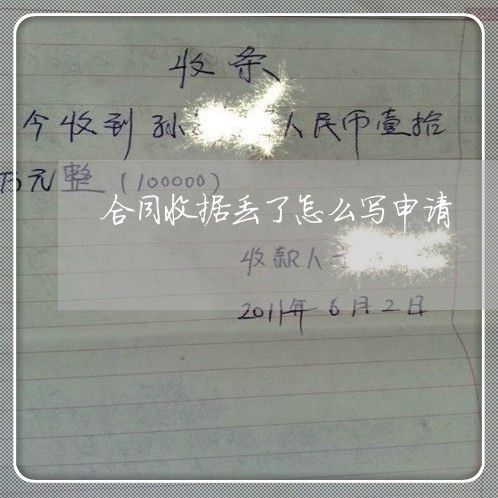 收条
今收到孙 人民币壹拾
万元整(100000)
合同收据丢了怎么写申请
收款人
2011年6月2日